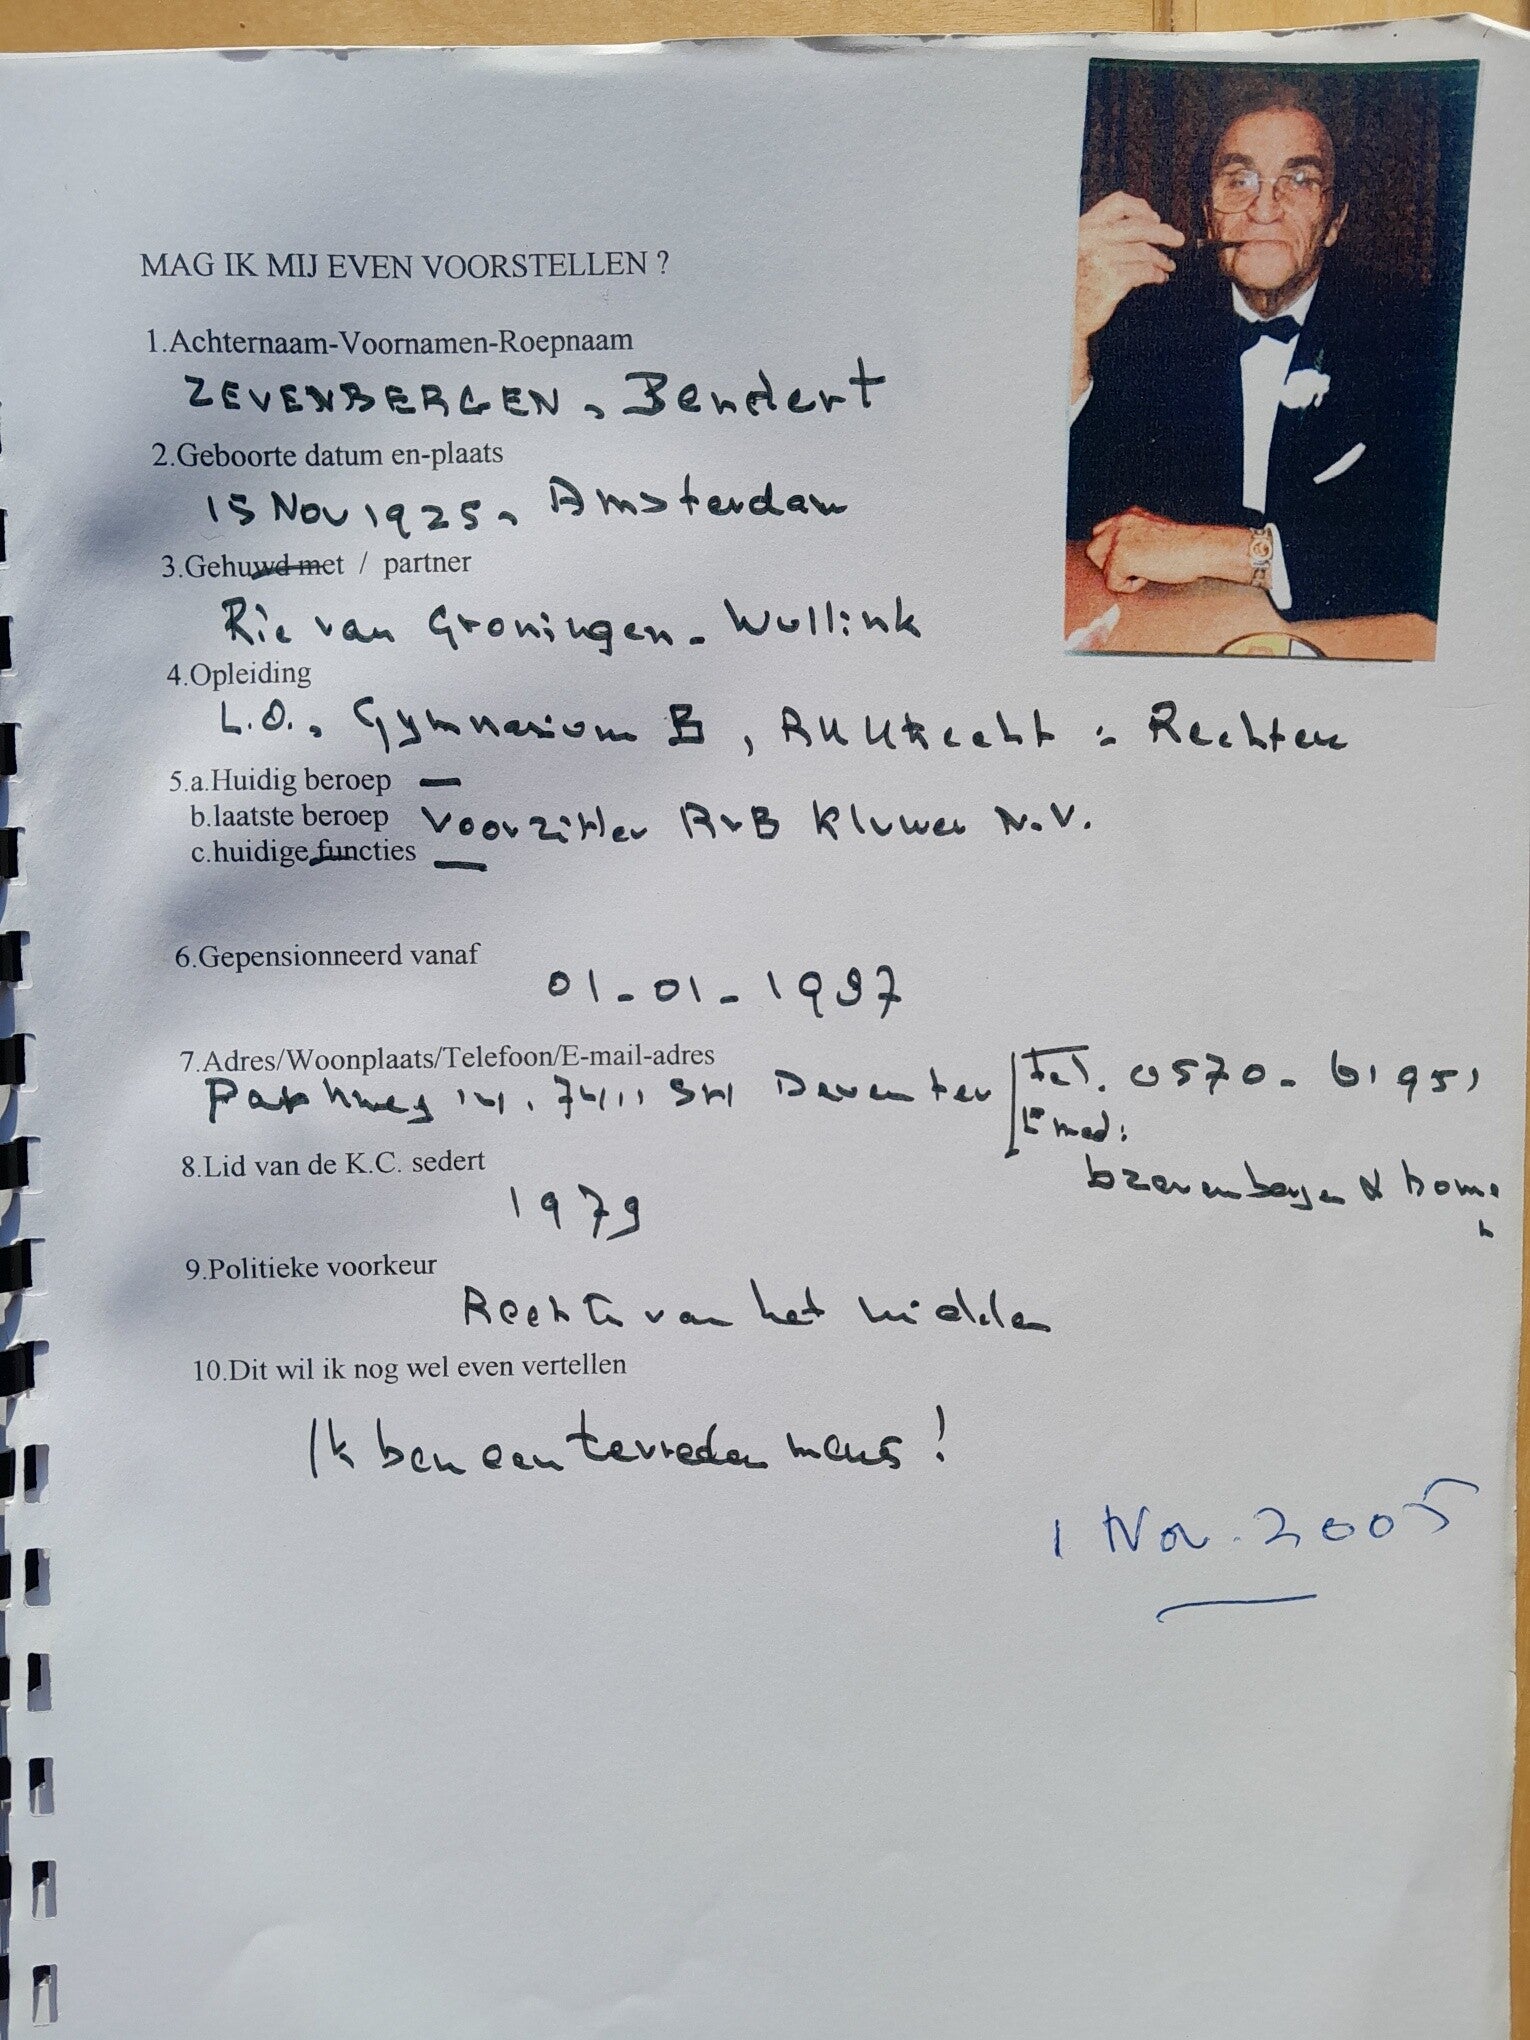 MAG IK MIJ EVEN VOORSTELLEN ?
1.Achternaam-Voornamen-Roepnaam
ZEVENBERGEN, Bendert
2.Geboorte datum en-plaats
15 Nov 1925, Amsterdam
3.Gehuwd met / partner
Rie van Groningen-Wullink
4.Opleiding
L.O., Gymnasium B, RU Utrecht : Rechten
5.a.Huidig beroep —
b.laatste beroep Voorzitter RvB Kluwer N.V.
c.huidige functies —
6.Gepensionneerd vanaf
01-01-1987
7.Adres/Woonplaats/Telefoon/E-mail-adres
14, 7411 Deventer Tel. 0570-61951
Email:
8.Lid van de K.C. sedert
1979
9.Politieke voorkeur
Rechts van het midden
10.Dit wil ik nog wel even vertellen
Ik ben een tevreden mens!
1 Nov. 2005